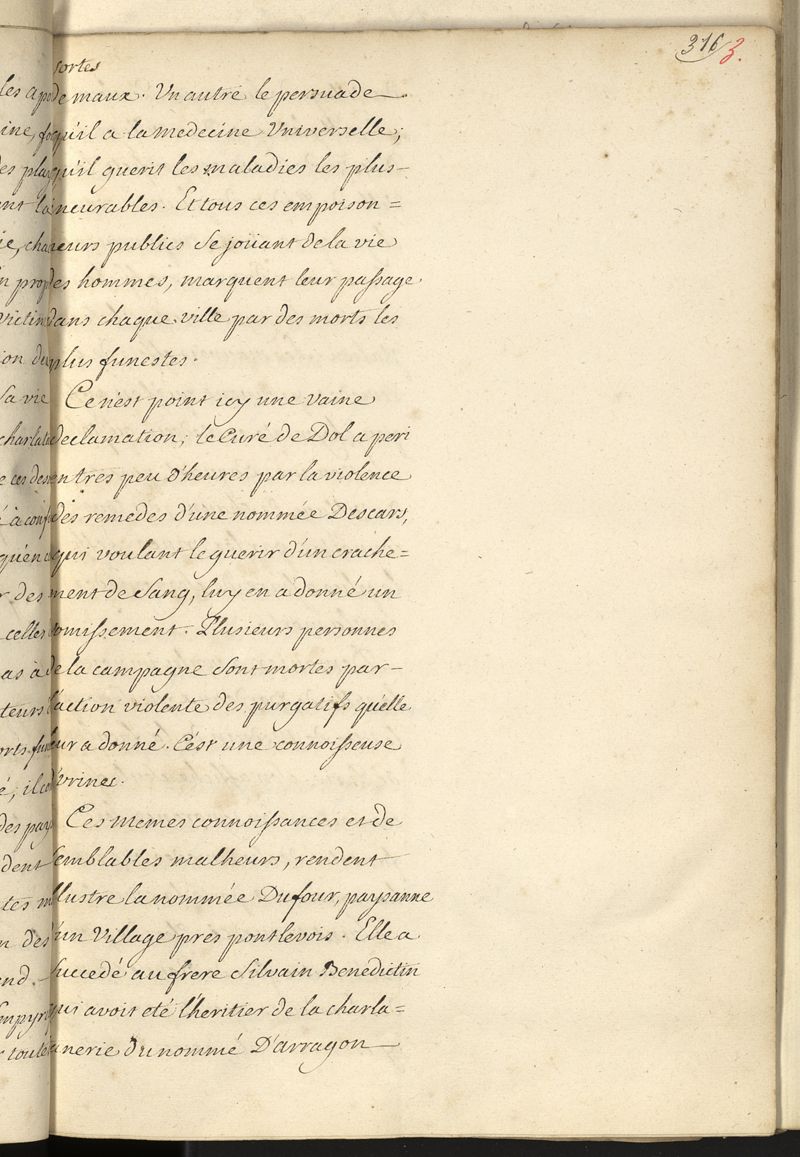 316 3.
sortes
de maux. Un autre le persuade
qu'il a la medecine Universelle;
qu'il guerit les maladies les plus
incurables. Et tous ces empoison=
neurs publics se joüant de la vie
des hommes, marquent leur passage
dans chaque ville par des morts les
plus funestes.
Ce n'est point icy une vaine
declamation; le Curé de Dol a peri
en tres peu d'heures par la violence
des remedes d'une nommée Descars,
qui voulant le guerir d'un crache=
ment de Sang, luy en a donné un
vomissement. Plusieurs personnes
de la campagne sont mortes par
l'action violente des purgatifs qu'elle
leur a donné. C'est une connoisseuse
d'Urines.
Ces memes connoissances et de
semblables malheurs, rendent
illustre la nommée Dufour, paysanne
d'un Village pres pontlevois. Elle a
succedé au frere Silvain Benedictin
qui avoit eté l'heritier de la charla=
tanerie du nommé D'arragon